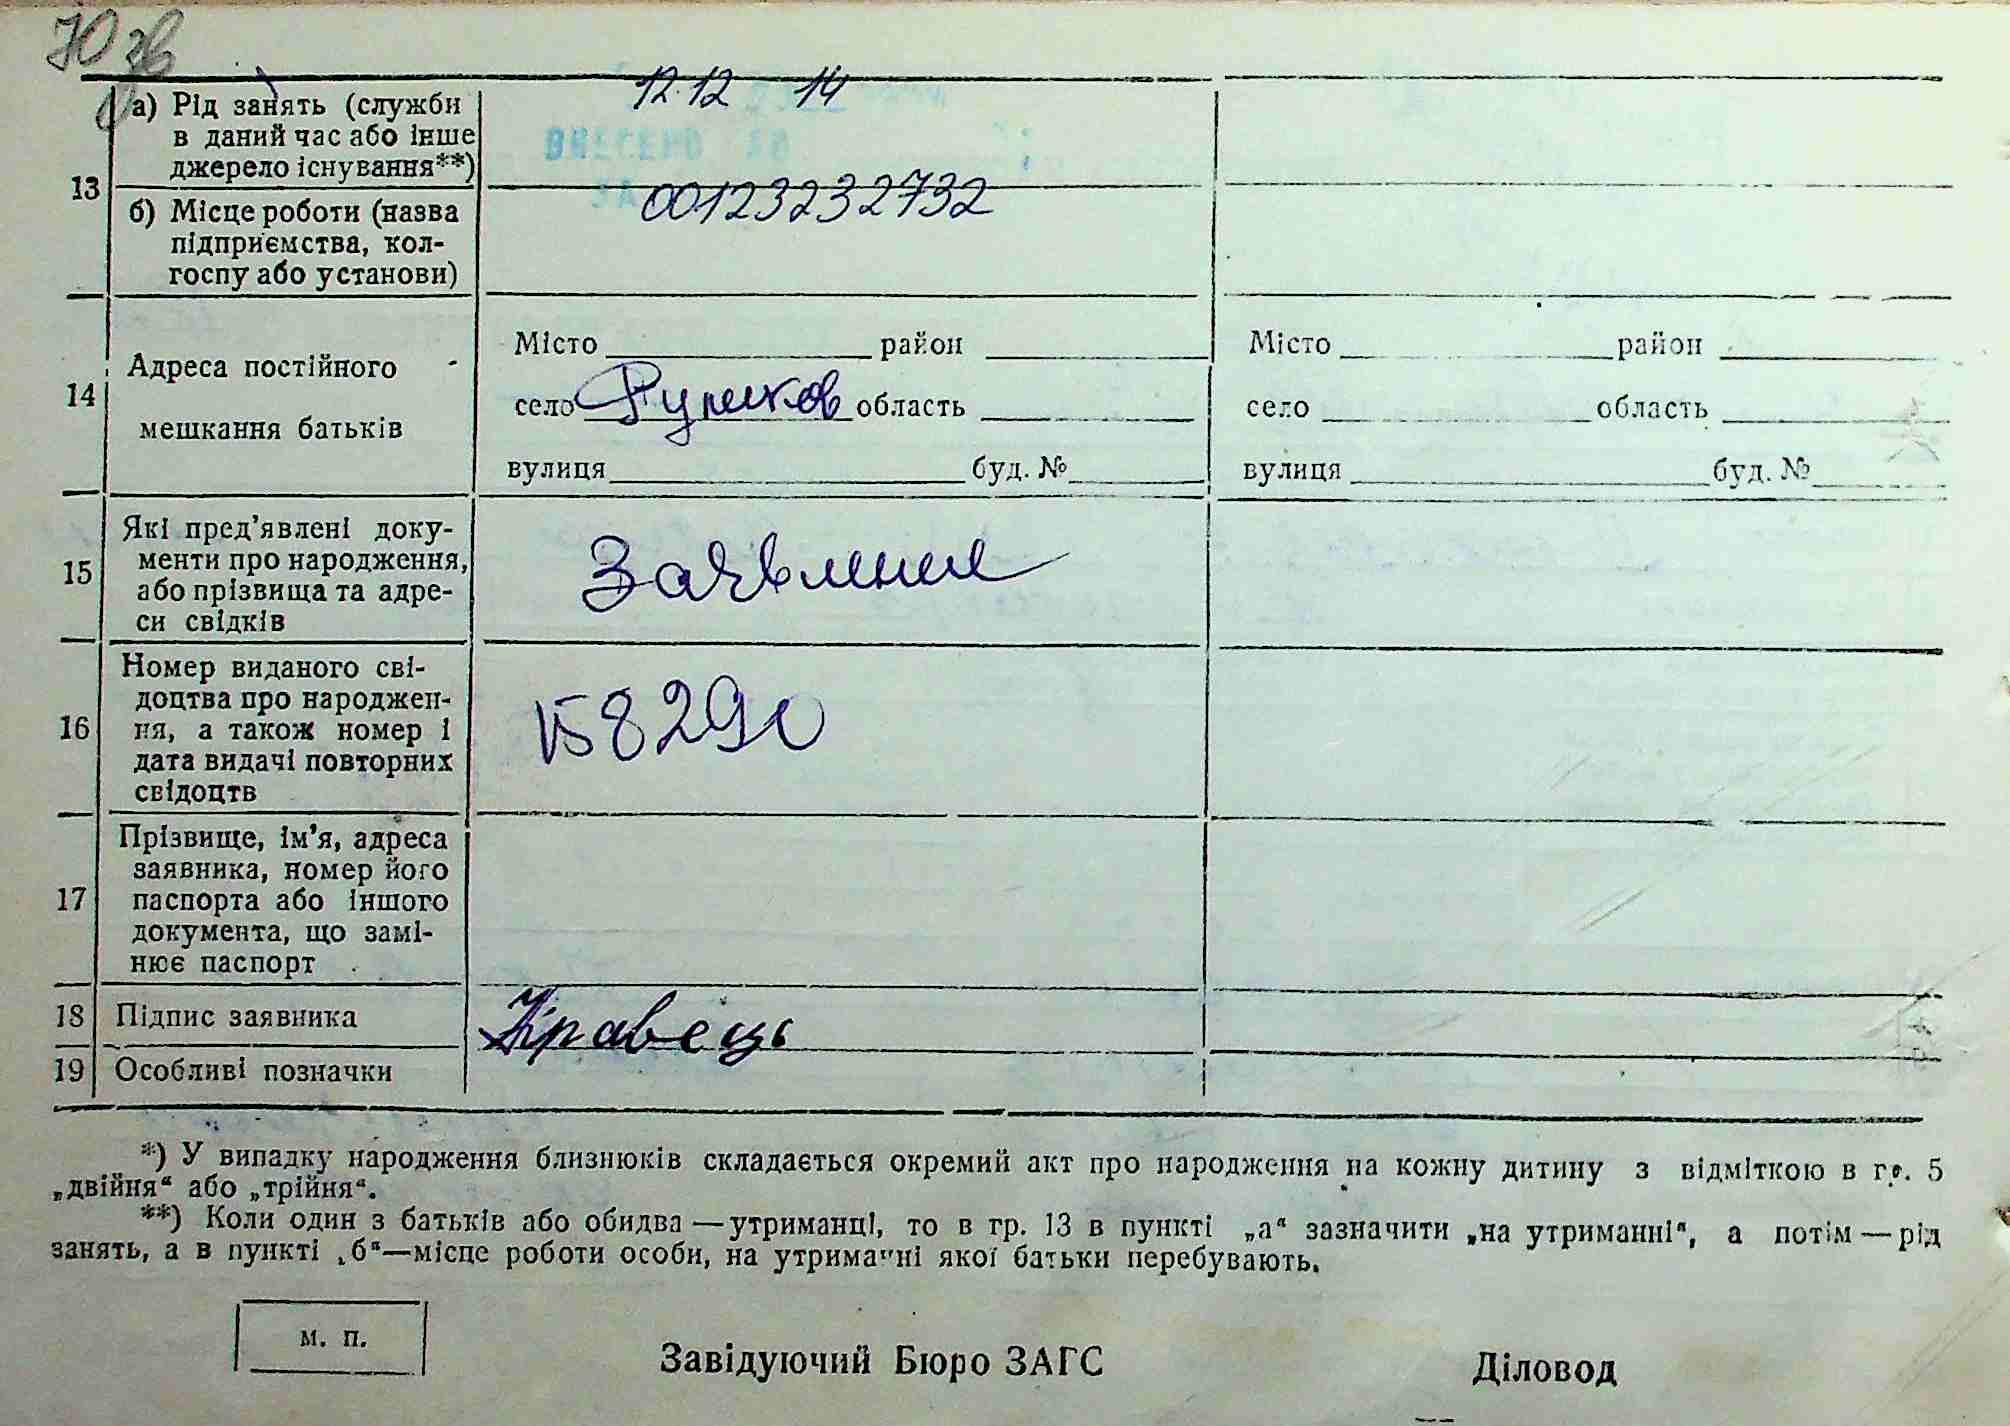 12.12 14
13
а) Рід занять (служби
в даний час або інше
джерело існування**)
00123232732
б) Місце роботи (назва
підприємства, кол-
госпу або установи)
14
Адреса постійного
мешкання батьків
Місто район
село область
вулиця буд. №
Місто район
село область
вулиця буд. №
15
Які пред’явлені доку-
менти про народження,
або прізвища та адре-
си свідків
Заявление
16
Номер виданого сві-
доцтва про народжен-
ня, а також номер і
дата видачі повторних
свідоцтв
158290
17
Прізвище, ім’я, адреса
заявника, номер його
паспорта або іншого
документа, що замі-
нює паспорт
18 Підпис заявника Кравець
19 Особливі позначки
*) У випадку народження близнюків складається окремий акт про народження на кожну дитину з відміткою в гр. 5
„двійня“ або „трійня“.
**) Коли один з батьків або обидва — утриманці, то в гр. 13 в пункті „а“ зазначити „на утриманні“, а потім — рід
занять, а в пункті „б“—місце роботи особи, на утриманні якої батьки перебувають.
м. п.
Завідуючий Бюро ЗАГС Діловод